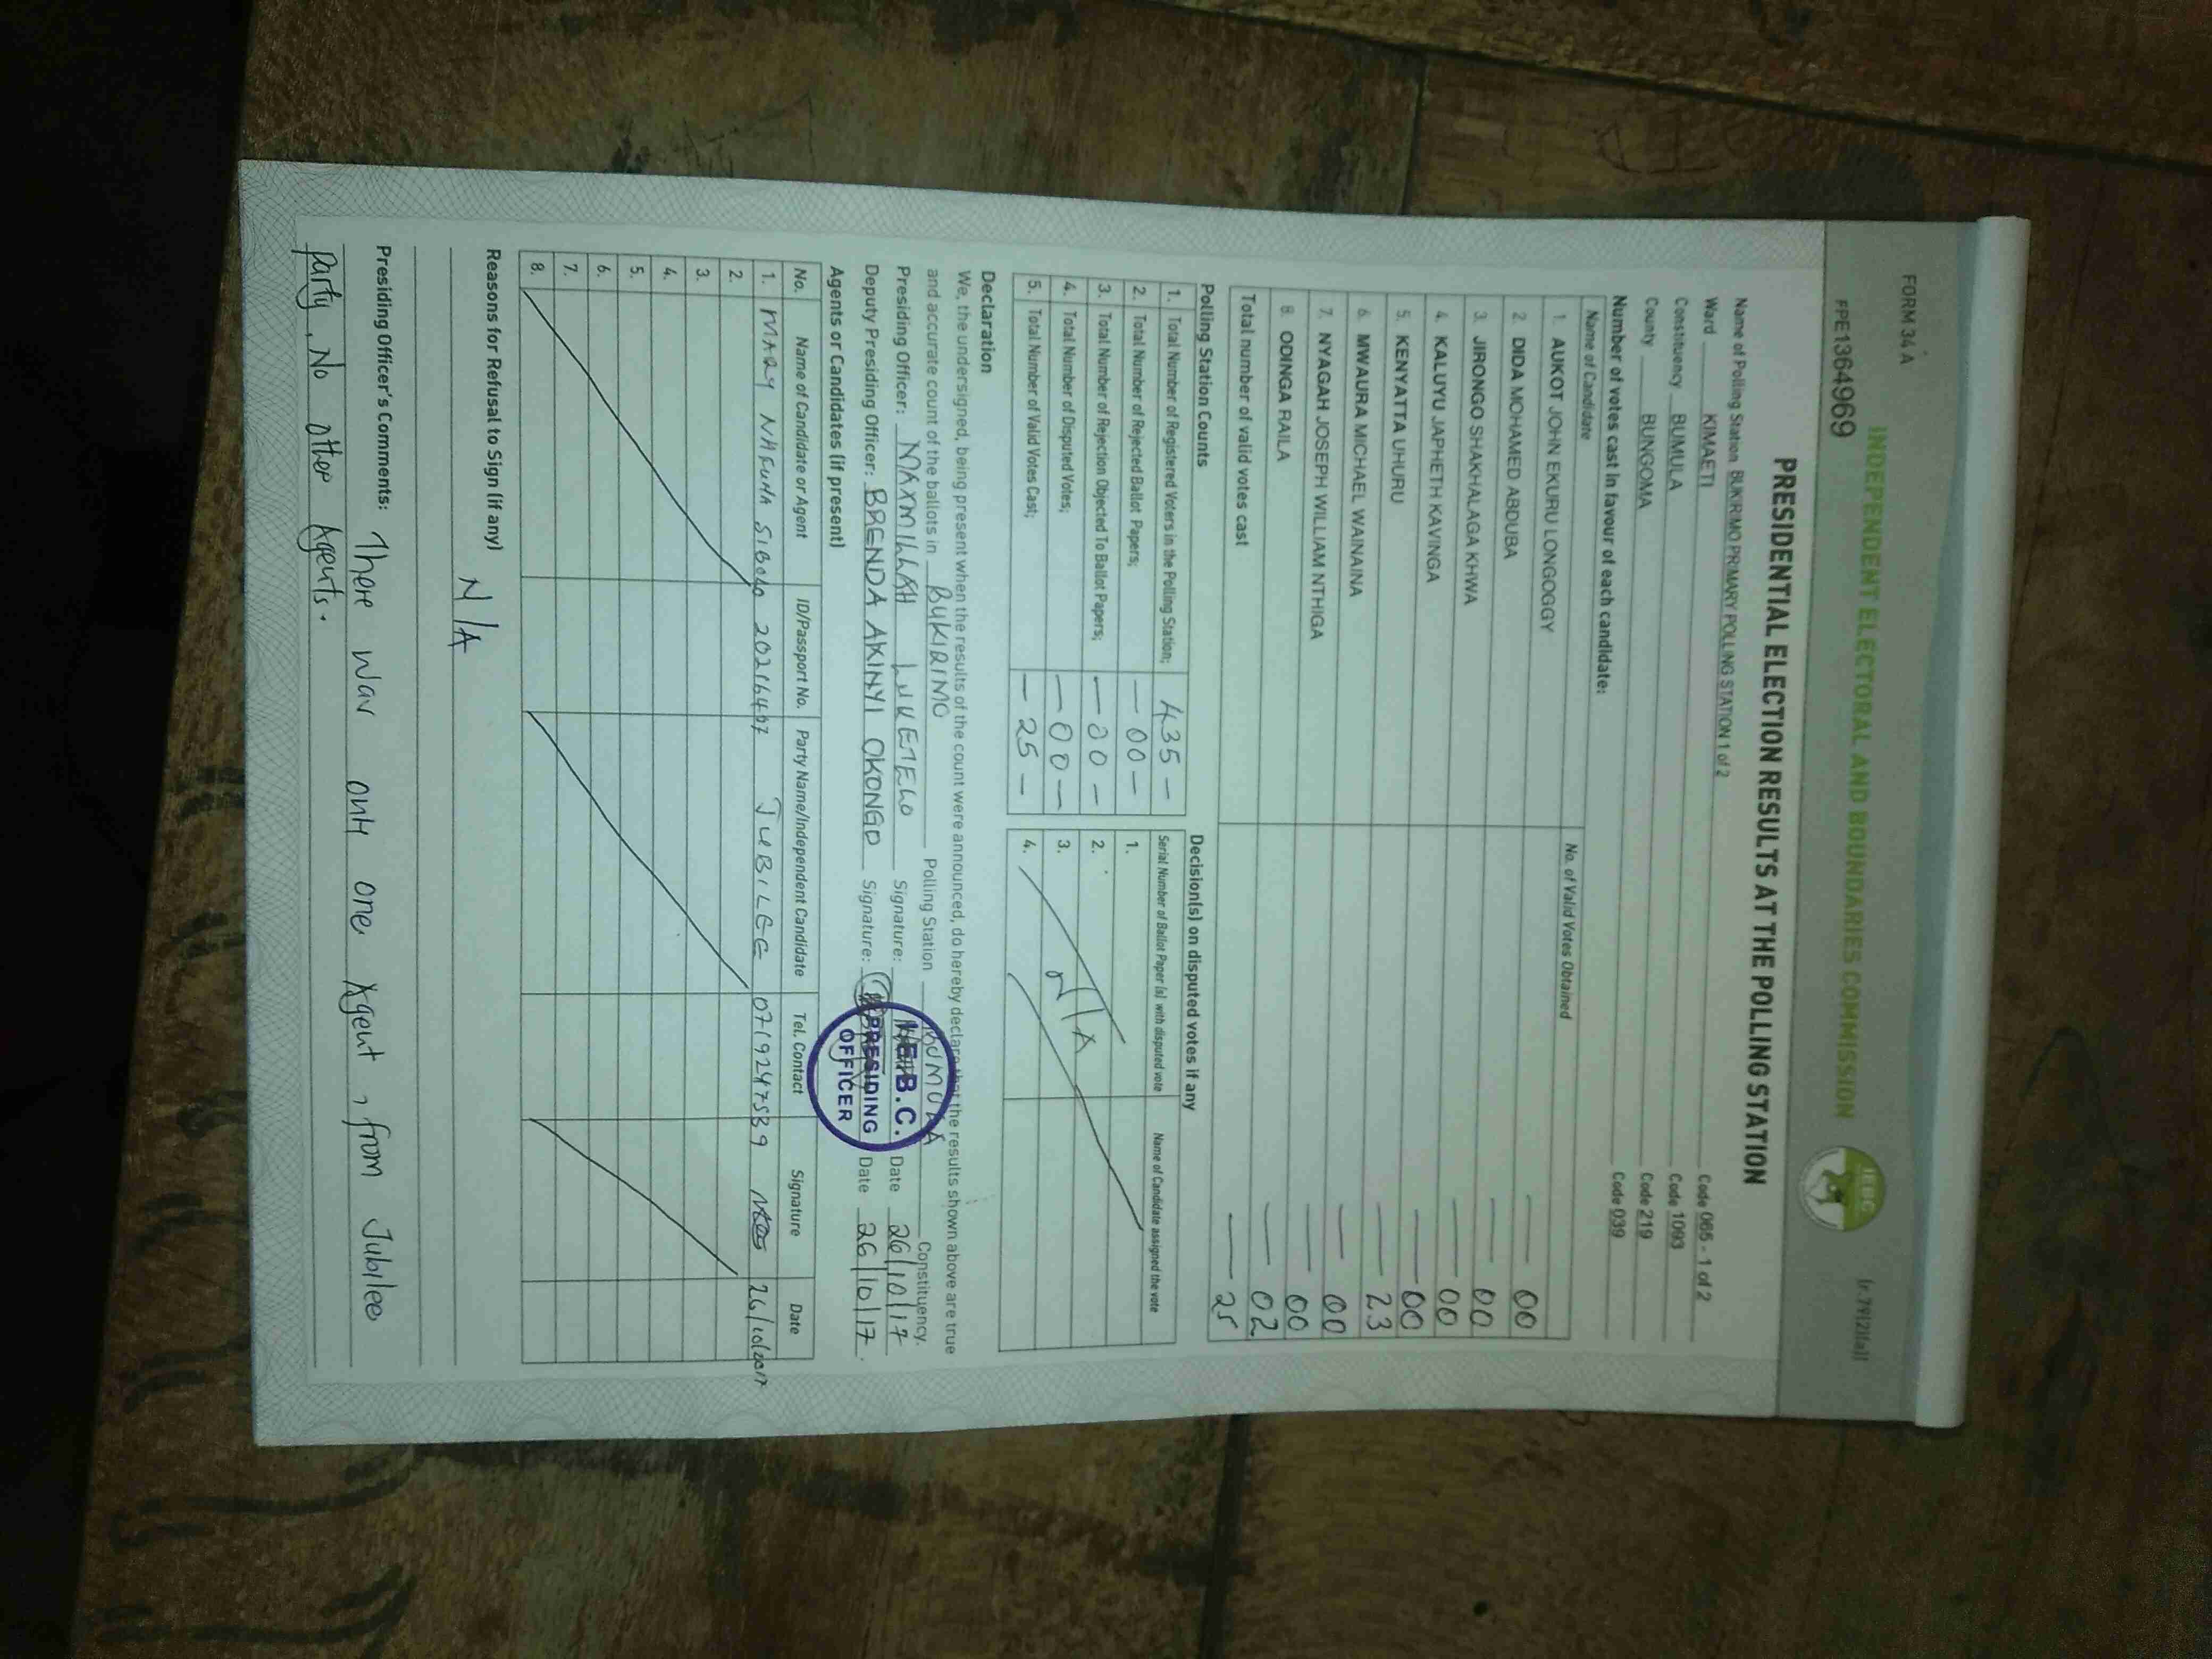 FORM 34 A
(r.79(2)(a))
INDEPENDENT ELECTORAL AND BOUNDARIES COMMISSION
IEBC
FPE1364969
PRESIDENTIAL ELECTION RESULTS AT THE POLLING STATION
Name of Polling Station BUKIRIMO PRIMARY POLLING STATION 1 of 2 Code 065 - 1 of 2
Ward KIMAETI Code 1093
Constituency BUMULA Code 219
County BUNGOMA Code 039
Number of votes cast in favour of each candidate:
Name of Candidate No. of Valid Votes Obtained
1. AUKOT JOHN EKURU LONGOGGY — 00
2. DIDA MOHAMED ABDUBA — 00
3. JIRONGO SHAKHALAGA KHWA — 00
4. KALUYU JAPHETH KAVINGA — 00
5. KENYATTA UHURU — 23
6. MWAURA MICHAEL WAINAINA — 00
7. NYAGAH JOSEPH WILLIAM NTHIGA — 00
8. ODINGA RAILA — 02
Total number of valid votes cast — 25
Polling Station Counts
1. Total Number of Registered Voters in the Polling Station; 435 —
2. Total Number of Rejected Ballot Papers; — 00 —
3. Total Number of Rejection Objected To Ballot Papers; — 00 —
4. Total Number of Disputed Votes; — 00 —
5. Total Number of Valid Votes Cast; — 25 —
Decision(s) on disputed votes if any
Serial Number of Ballot Paper (s) with disputed vote Name of Candidate assigned the vote
1.
2.
3. N/A
4.
Declaration
We, the undersigned, being present when the results of the count were announced, do hereby declare that the results shown above are true
and accurate count of the ballots in BUKIRIMO Polling Station BUMULA Constituency.
Presiding Officer: MAXMILLAH LUKETELO Signature: Date 26/10/17
Deputy Presiding Officer: BRENDA AKINYI OKONGO Signature: Date 26/10/17
I.E.B.C.
PRESIDING
OFFICER
Agents or Candidates (if present)
No. Name of Candidate or Agent ID/Passport No. Party Name/Independent Candidate Tel. Contact Signature Date
1. MARY JUBILEE 0719247539 26/10/2017
2.
3.
4.
5.
6.
7.
8.
Reasons for Refusal to Sign (if any)
N/A
Presiding Officer's Comments: There was only one Agent, from Jubilee
party, No other Agents.